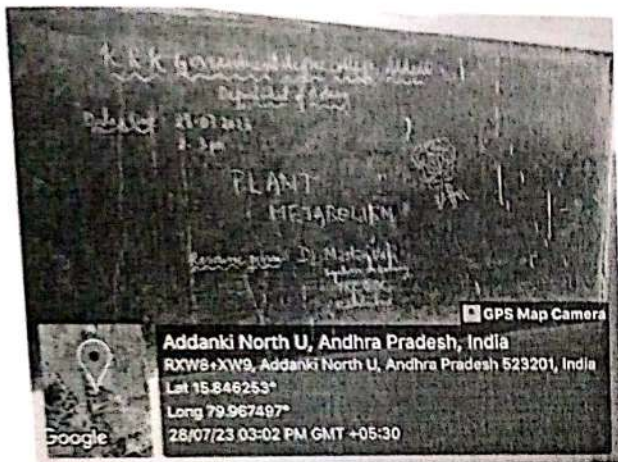 K R K Government degree college, Addanki
Department of Botany
Date & Day
2-3 pm
PLANT
METABOLISM
Resource person Dr.
GPS Map Camera
Addanki North U, Andhra Pradesh, India
RXW8+XW9, Addanki North U, Andhra Pradesh 523201, India
Lat 15.846253°
Long 79.967497°
28/07/23 03:02 PM GMT +05:30
Google